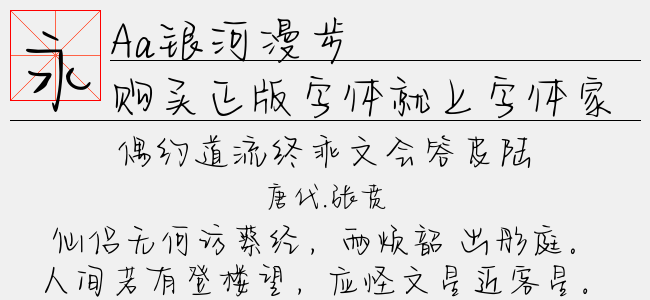 永
Aa银河漫步
购买正版字体就上字体家
偶约道流终乖文会答皮陆
唐代.张贲
仙侣无何访蔡经，两烦韶 出彤庭。
人间若有登楼望，应怪文星近客星。